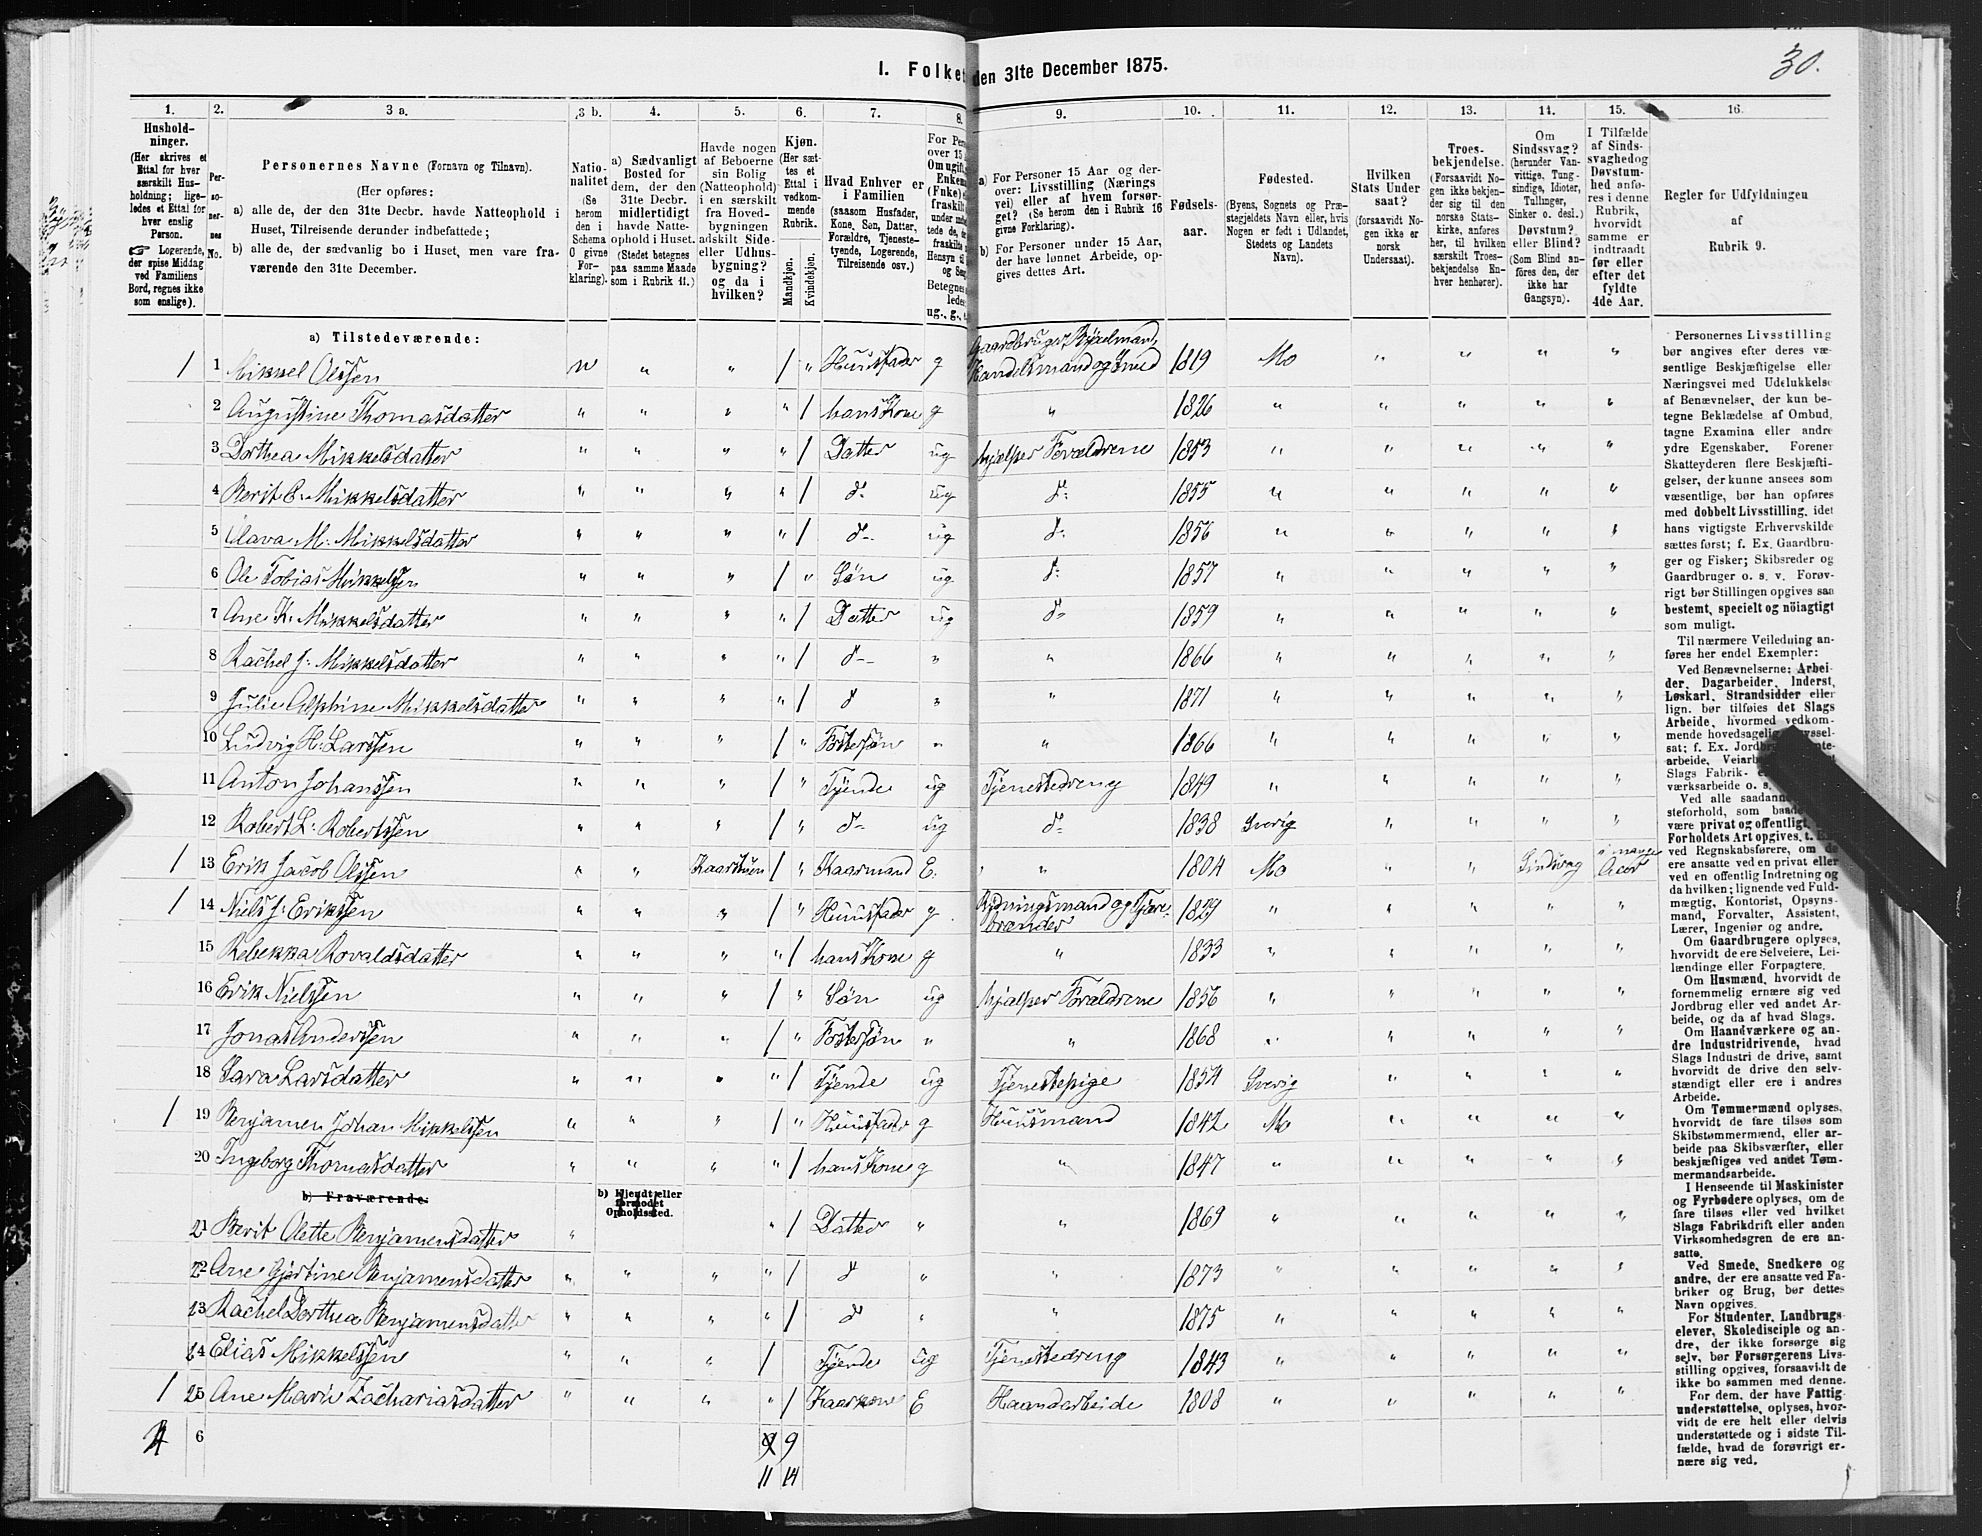 30.
I. Folket den 31te December 1875.
1. 2. 3 a. 3 b. 4. 5. 6. 7. 8. 9. 10. 11. 12. 13. 14. 15. 16.
Hushold-
ninger.
(Her skrives et
Ettal for hver
særskilt Hus-
holdning; lige-
ledes et Ettal for
hver enslig
Person.
☞ Logerende,
der spise Middag
ved Familiens
Bord, regnes ikke
som enslige).
Per-
so-
ner-
nes
No.
Personernes Navne (Fornavn og Tilnavn).
(Her opføres:
a) alle de, der den 31te Decbr. havde Natteophold i
Huset, Tilreisende derunder indbefattede;
b) alle de, der sædvanlig bo i Huset, men vare fra-
værende den 31te December.
Natio-
nalitet
(Se
herom
den i
Schema
O givne
For-
klaring).
a) Sædvanligt
Bosted for
dem, der den
31te Decbr.
midlertidigt
havde Natte-
ophold i Huset.
(Stedet betegnes
paa samme Maade
som i Rubrik 11.)
Havde nogen
af Beboerne
sin Bolig
(Natteophold)
i en særskilt
fra Hoved-
bygningen
adskilt Side-
eller Udhus-
bygning?
og da i
hvilken?
Kjøn.
(Her sæt-
tes et
Ettal i
vedkom-
mende
Rubrik.
Mandkjøn.
Kvindekjøn.
Hvad Enhver er
i Familien
(saasom Husfader,
Kone, Søn, Datter,
Forældre, Tjeneste-
tyende, Logerende,
Tilreisende osv.)
For Per
over 15
Om ugift
Enkem
(Fnke)
fraskilt
under
tede de,
fraskilte
Hensyn til
og Sen
Betegne
ledes
ug., g.,
a) For Personer 15 Aar og der-
over: Livsstilling (Nærings
vei) eller af hvem forsør-
get? (Se herom den i Rubrik 16
givne Forklaring).
b) For Personer under 15 Aar,
der have lønnet Arbeide, op-
gives dettes Art.
Fødsels-
aar.
Fødested.
(Byens, Sognets og Præ-
stegjeldets Navn eller, hvis
Nogen er født i Udlandet,
Stedets og Landets
Navn).
Hvilken
Stats Under
saat?
(forsaavidt No-
gen ikke er
norsk
Undersaat).
Troes-
bekjendelse.
(Forsaavidt No-
gen ikke bekjen-
der sig til den
norske Stats-
kirke, anføres
her, til hvilken
særskilt Troes-
bekjendelse En-
hver henhører).
Om
Sindssvag?
(herunder Van-
vittige, Tung-
sindige, Idioter,
Tullinger,
Sinker o. desl.)
Døvstum?
eller Blind?
(Som Blind an-
føres den, der
ikke har
Gangsyn).
I Tilfælde
af Sinds-
svaghed og
Døvstum-
hed anfø-
res i denne
Rubrik,
hvorvidt
samme er
indtraadt
før eller
efter det
fyldte
4de Aar.
Regler for Udfyldningen
af
Rubrik 9.
a) Tilstedeværende:
1 1 Mikkel Olssen n " " 1 " Huusfader g Gaardbruger, Selveier, Handelsmand og Smed 1819 Mo " " " "
2 Augustine Thomasdatter " " " " 1 hans Kone g " 1826 " " " " "
3 Dorthea Mikkelsdatter " " " " 1 Datter ug hjælper Forældrene 1853 " " " " "
4 Berit C. Mikkelsdatter " " " " 1 d. ug d: 1855 " " " " "
5 Clara M. Mikkelsdatter " " " " 1 d- ug d: 1856 " " " " "
6 Ole Tobias Mikkelssen " " " 1 " Søn ug d: 1857 " " " " "
7 Ane K. Mikkelsdatter " " " " 1 Datter ug d- 1859 " " " " "
8 Rachel J. Mikkelsdatter " " " " 1 d- " " 1866 " " " " "
9 Julie Alphine Mikkelsdatter " " " " 1 d " " 1871 " " " " "
10 Ludvig H. Larssen " " " 1 " Fostersøn " " 1866 " " " " "
11 Anton Johanssen " " " 1 " Tjende ug Tjenestedreng 1849 " " " " "
12 Robert L. Robertssen " " " 1 " d- ug d- 1838 Sverig " " " "
1 13 Erik Jacob Olssen " " Kaarstuen 1 " Kaarmand E. " " 1804 Mo " " Sindsvag
1 14 Niels J. Erikssen " " " 1 " Huusfader g Rydningsmand og Tjærebrænder 1829 " " " " "
15 Rebekka Rovaldsdatter " " " " 1 hans Kone g " 1833 " " " " "
16 Erik Nielssen " " " 1 " Søn ug hjælper Forældrene 1856 " " " " "
17 Jonas Anderssen " " " 1 " Fostersøn " " 1868 " " " " "
18 Sara Larsdatter " " " " 1 Tjende ug Tjenestepige 1854 Sverig " " " "
1 19 Benjamen Johan Mikkelssen " " " 1 " Huusfader g Huusmand 1842 Mo " " " "
20 Ingeborg Thomasdatter " " " " 1 hans Kone g " 1847 " " " " "
b) Fraværende:
b) Kjendt eller
formodet
Opholdssted.
21 Berit Olette Benjamensdatter " " 1 Datter " " 1869 " " " " "
22 Ane Gjertine Benjamensdatter " " " " 1 d " " 1873 " " " " "
23 Rachel Dorthea Benjamensdatter " " " " 1 d " " 1875 " " " " "
24 Elias Mikkelssen " " " 1 Tjende ug Tjenestedreng 1843 " " " " "
1 25 Ane Marie Zachariasdatter " " " " 1 Kaarkone E Haandarbeide 1808 " " " " "
6 9 9
11 14
Personernes Livsstilling
bør angives efter deres væ-
sentlige Beskjæftigelse eller
Næringsvei med Udelukkelse
af Benævnelser, der kun be-
tegne Beklædelse af Ombud,
tagne Examina eller andre
ydre Egenskaber. Forener
Skatteyderen flere Beskjæfti-
gelser, der kunne ansees som
væsentlige, bør han opføres
med dobbelt Livsstilling, idet
hans vigtigste Erhvervskilde
sættes først; f. Ex. Gaardbru-
ger og Fisker; Skibsreder og
Gaardbruger o. s. v. Forøv-
rigt bør Stillingen opgives saa
bestemt, specielt og nöiagtigt
som muligt.
Til nærmere Veiledning an-
føres her endel Exempler:
Ved Benævnelserne: Arbei-
der, Dagarbeider, Inderst,
Løskarl, Strandsidder eller
lign. bør tilføies det Slags
Arbeide, hvormed vedkom-
mende hovedsagelig
sat; f. Ex.
arbeide,
Slags Fabrik-
værksarbeide o. s.
Ved alle saadanne
steforhold, som
være privat og offentligt,
Forholdets Art opgives, t.
ved Regnskabsførere, om de
ere ansatte ved en privat eller
ved en offentlig Indretning og
da hvilken; lignende ved Fuld-
mægtig, Kontorist, Opsyns-
mand, Forvalter, Assistent,
Lærer, Ingeniør og andre.
Om Gaardbrugere oplyses,
hvorvidt de ere Selveiere, Lei-
lændinge eller Forpagtere.
Om Husmænd, hvorvidt de
fornemmelig ernære sig ved
Jordbrug eller ved andet Ar-
beide, og da af hvad Slags.
Om Haandværkere og an-
dre Industridrivende, hvad
Slags Industri de drive, samt
hvorvidt de drive den selv-
stændigt eller ere i andres
Arbeide.
Om Tømmermænd oplyses,
hvorvidt de fare tilsøs som
Skibstømmermænd, eller ar-
beide paa Skibsværfter, eller
beskjæftiges ved andet Tøm-
mermandsarbeide.
I Henseende til Maskinister
og Fyrbødere oplyses, om de
fare tilsøs eller ved hvilket
Slags Fabrikdrift eller anden
Virksomhedsgren de ere an-
satte.
Ved Smede, Snedkere og
andre, der ere ansatte ved Fa-
briker og Brug, bør dettes
Navn opgives.
For Studenter, Landbrugs-
elever, Skoledisciple og an-
dre, der ikke forsørge sig
selv, bør Forsørgerens Livs-
stilling opgives, forsaavilt de
ikke bo sammen med denne.
For dem, der have Fattig-
understøttelse, oplyses, hvor-
vidt de ere helt eller delvis
understøttede og i sidste Til-
fælde, hvad de forøvrigt er-
nære sig ved.